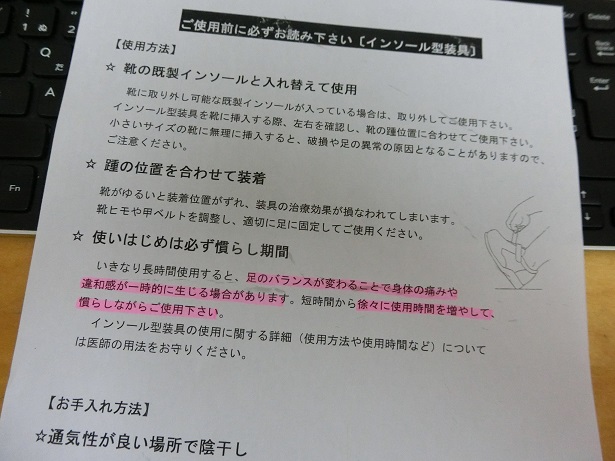 ご使用前に必ずお読み下さい〔インソール型装具〕
【使用方法】
☆ 靴の既製インソールと入れ替えて使用
靴に取り外し可能な既製インソールが入っている場合は、取り外してご使用下さい。
インソール型装具を靴に挿入する際、左右を確認し、靴の踵位置に合わせてご使用下さい。
小さいサイズの靴に無理に挿入すると、破損や足の異常の原因となることがありますので、
ご注意ください。
☆ 踵の位置を合わせて装着
靴がゆるいと装着位置がずれ、装具の治療効果が損なわれてしまいます。
靴ヒモや甲ベルトを調整し、適切に足に固定してご使用ください。
☆ 使いはじめは必ず慣らし期間
いきなり長時間使用すると、足のバランスが変わることで身体の痛みや
違和感が一時的に生じる場合があります。短時間から徐々に使用時間を増やして、
慣らしながらご使用下さい。
インソール型装具の使用に関する詳細（使用方法や使用時間など）について
は医師の用法をお守りください。
【お手入れ方法】
☆通気性が良い場所で陰干し
Fn